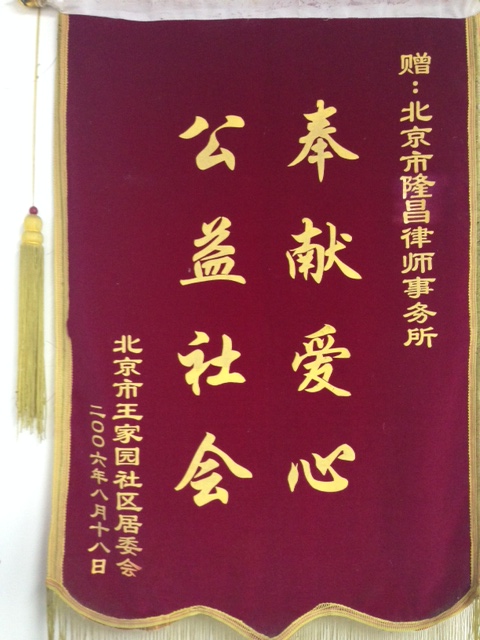 赠：北京市隆昌律师事务所
奉献爱心
公益社会
北京市王家园社区居委会
二〇〇六年八月十八日